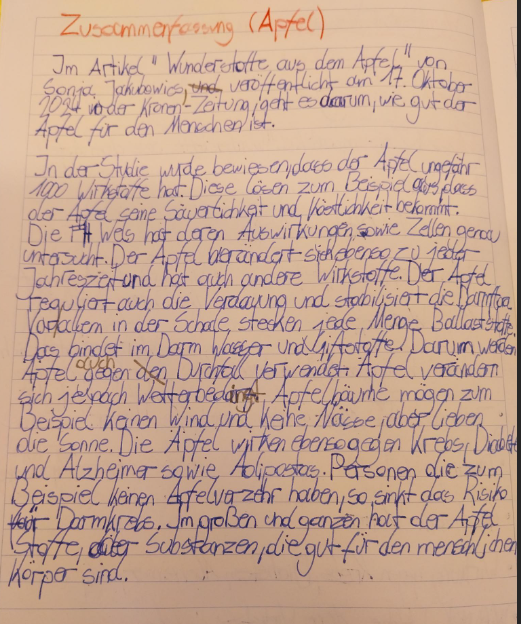 Zusammenfassung (Apfel)
Im Artikel "Wunderstoffe aus dem Apfel" von
Sonja Jakubowics, und veröffentlicht am 17. Oktober
2024 in der Kronen-Zeitung, geht es darum, wie gut der
Apfel für den Menschen ist.
In der Studie wurde bewiesen, dass der Apfel ungefähr
1000 Wirkstoffe hat. Diese lösen zum Beispiel aus, dass
der Apfel seine Säuerlichkeit und Köstlichkeit bekommt.
Die FH Wels hat deren Auswirkungen, sowie Zellen genau
untersucht. Der Apfel verändert sich ebenso zu jeder
Jahreszeit und hat auch andere Wirkstoffe. Der Apfel
reguliert auch die Verdauung und stabilisiert die
Vorallem in der Schale stecken jede Menge Ballaststoffe.
Das bindet im Darm Wasser und Giftstoffe. Darum werden
Äpfel auch gegen den Durchfall verwendet. Äpfel verändern
sich je nach Wetterbedingt. Apfelbäume mögen zum
Beispiel keinen Wind und keine Nässe, aber lieben
die Sonne. Die Äpfel wirken ebenso gegen Krebs, Diabetes
und Alzheimer sowie Adipostas. Personen die zum
Beispiel keinen Apfelverzehr haben, so sinkt das Risiko
für Darmkrebs. Im großen und ganzen hat der Apfel
Stoffe, oder Substanzen, die gut für den menschlichen
Körper sind.